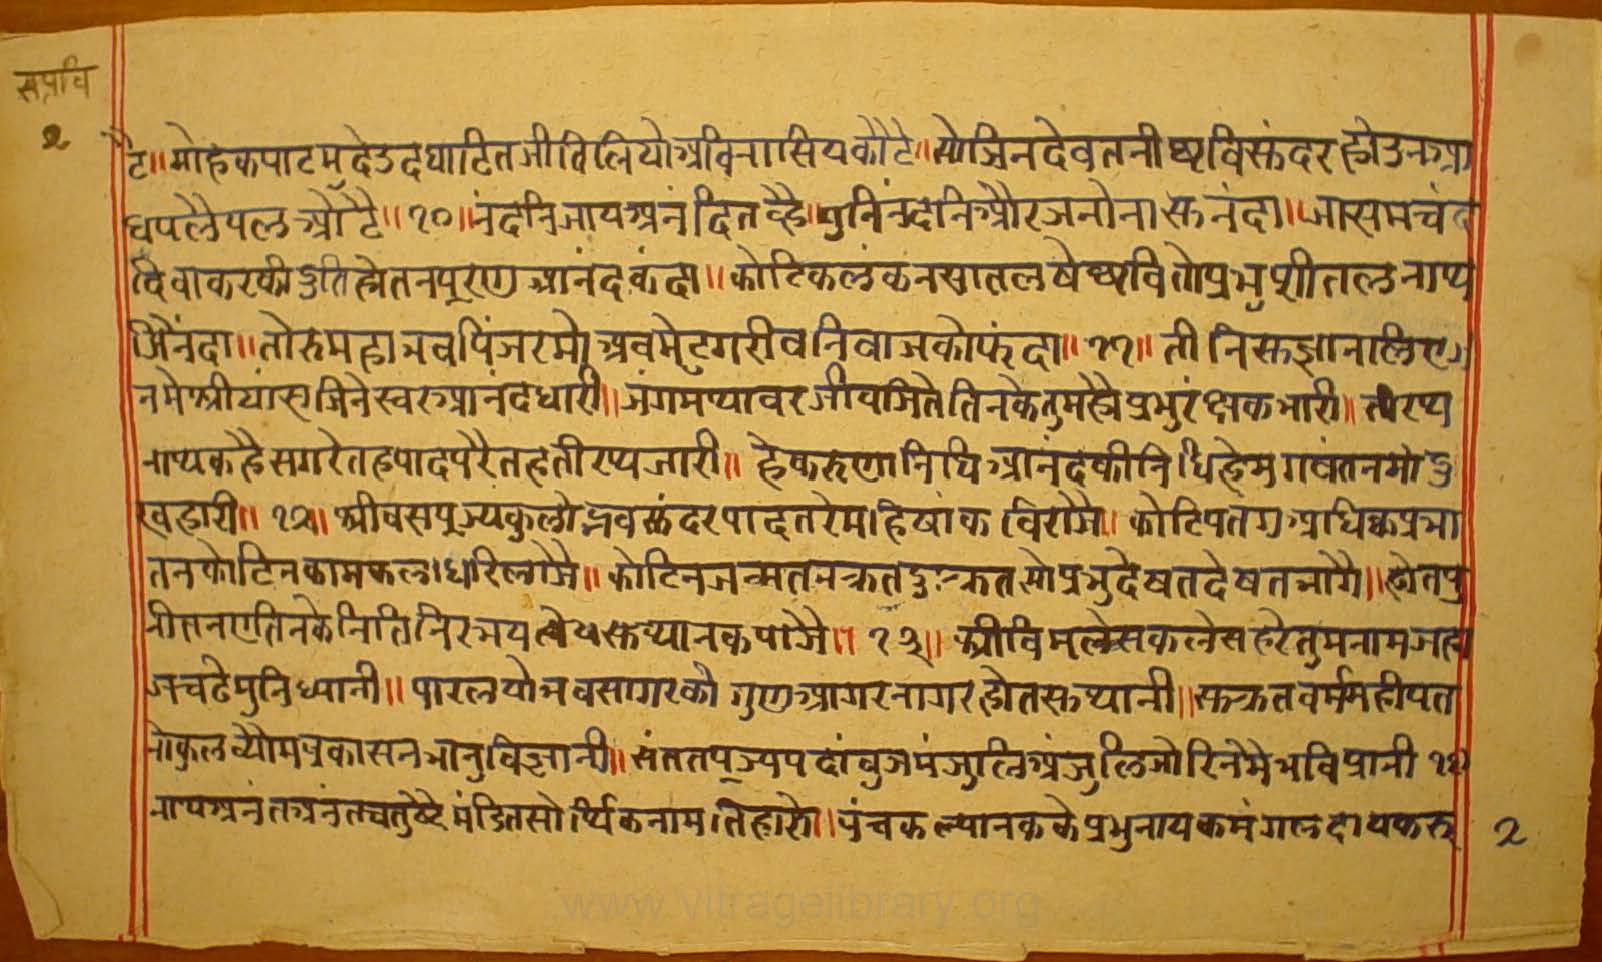 सप्तवि
२
टै॥ मोहकपाटमुदेउदघाटितजीतिलियोअविनासियकोटै॥ सोजिनदेवतनीथुविसुंदरहोउनआ
धपलैपलऔटै॥ १०॥ नंदनिजायअनंदितव्हैहै॥ पुनिनंदनिऔरजनोनासुनंदा॥ जासमचंद
दिवाकरकीदुतिहोतनपूरणआनंदकंदा॥ कोटिकलंकनसातलषेथुवितोप्रभुशीतलनाथ
जिनंदा॥ तोरुमहाभवपिंजरमोअवमेटुगरीवनिवाजकोफंदा॥ ११॥ तीनिसुज्ञानलिए
नमेश्रीयांसजिनेस्वरआनंदधारी॥ जंगमथावरजीवजितेतिनकेतुमहोप्रभुरंक्षकभारी॥ तीरथ
नाथकहैसगरेतहपादपरैतहतीरथजारी॥ हेकरुणानिधिआनंदकीनिधिहेभगवंतनमोदु
खहारी॥ १२॥ श्रीवसपूज्यकुलोद्भवसुंदरपादतरेमहिषांकविराजै॥ कोटिपतगअधिकप्रभा
तनकोटिनकामकलाधरिलाजै॥ कोटिनजन्मतनेक्रतदुःक्रतसोप्रभुदेषतदेषतभागै॥ होतपु
नीतनएतिनकेनितिनिरभयत्वेयसुथानकपाजै॥ १३॥ श्रीविमलेसकलेसहरेतुमनामजहा
जचढेमुनिध्यानी॥ पारलयोभवसागरकोगुणआगरनागरहोतसुथानी॥ सुक्रतवर्ममहीपत
नोकुलव्योमप्रकासनभानुविज्ञानी॥ संततपूज्यपदांवुजमंजुलिअंजुलिजोरिनमेभविप्रानी १४
नाथअनंतअनंतचतुष्टैमंडितसोर्थिकनामतिहारो॥ पंचकल्यानककेप्रभुनायकमंगलदायकरु
२
www.vitragelibrary.org